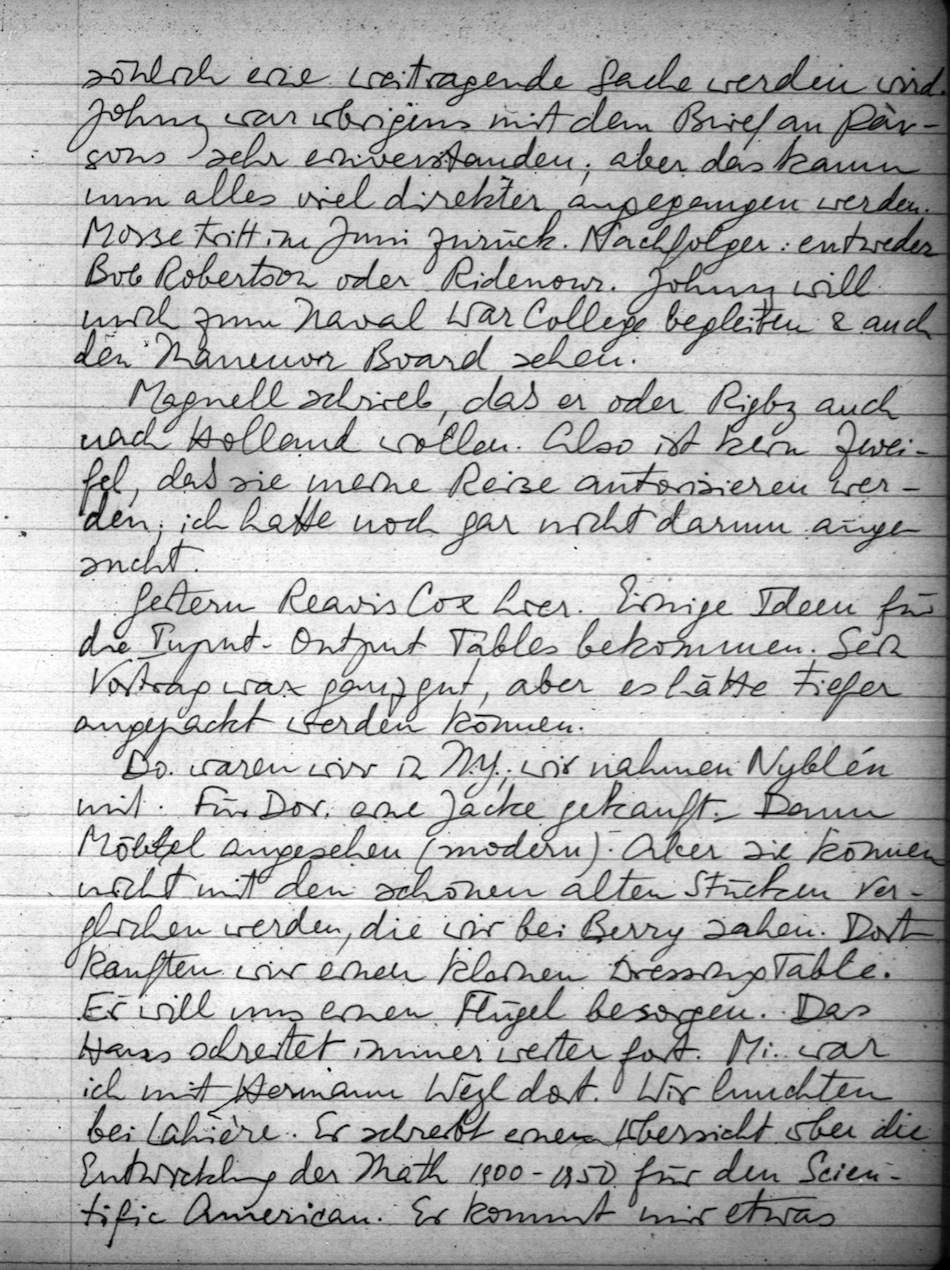 söhnlich eine weitragende Sache werden wird.
Johnny war übrigens mit dem Brief an Par-
sons sehr einverstanden; aber das kann
nun alles viel direkter angegangen werden.
Morse tritt im Juni zurück. Nachfolger: entweder
Bob Robertson oder Ridenour. Johnny will
mich zum Naval War College begleiten & auch
den Maneuver Board sehen.
Magnell schrieb, das er oder Rigby auch
nach Holland wollen. Also ist kein Zwei-
fel, das sie meine Reise autorisieren wer-
den; ich hatte noch gar nicht darum ange
sucht.
Gestern Reavis Cox hier. Einige Ideen für
die Input-Output Tables bekommen. Sein
Vortrag war ganz gut, aber es hätte tiefer
angepackt werden können.
Do. waren wir in N.Y.; wir nahmen Nyblén
mit. Für Dor. eine Jacke gekauft. Dann
Möbel angesehen (modern). Aber sie können
nicht mit den schönen alten Stücken ver-
glichen werden, die wir bei Berry sahen. Dort
kauften wir einen kleinen Dressing Table.
Er will uns einen Flügel besorgen. Das
Haus schreitet immer weiter fort. Mi. war
ich mit Hermann Weyl dort. Wir lunchten
bei Lahière. Er schreibt einen Übersicht über die
Entwicklung der Math 1900-1950 für den Scien-
tific American. Er kommt mir etwas